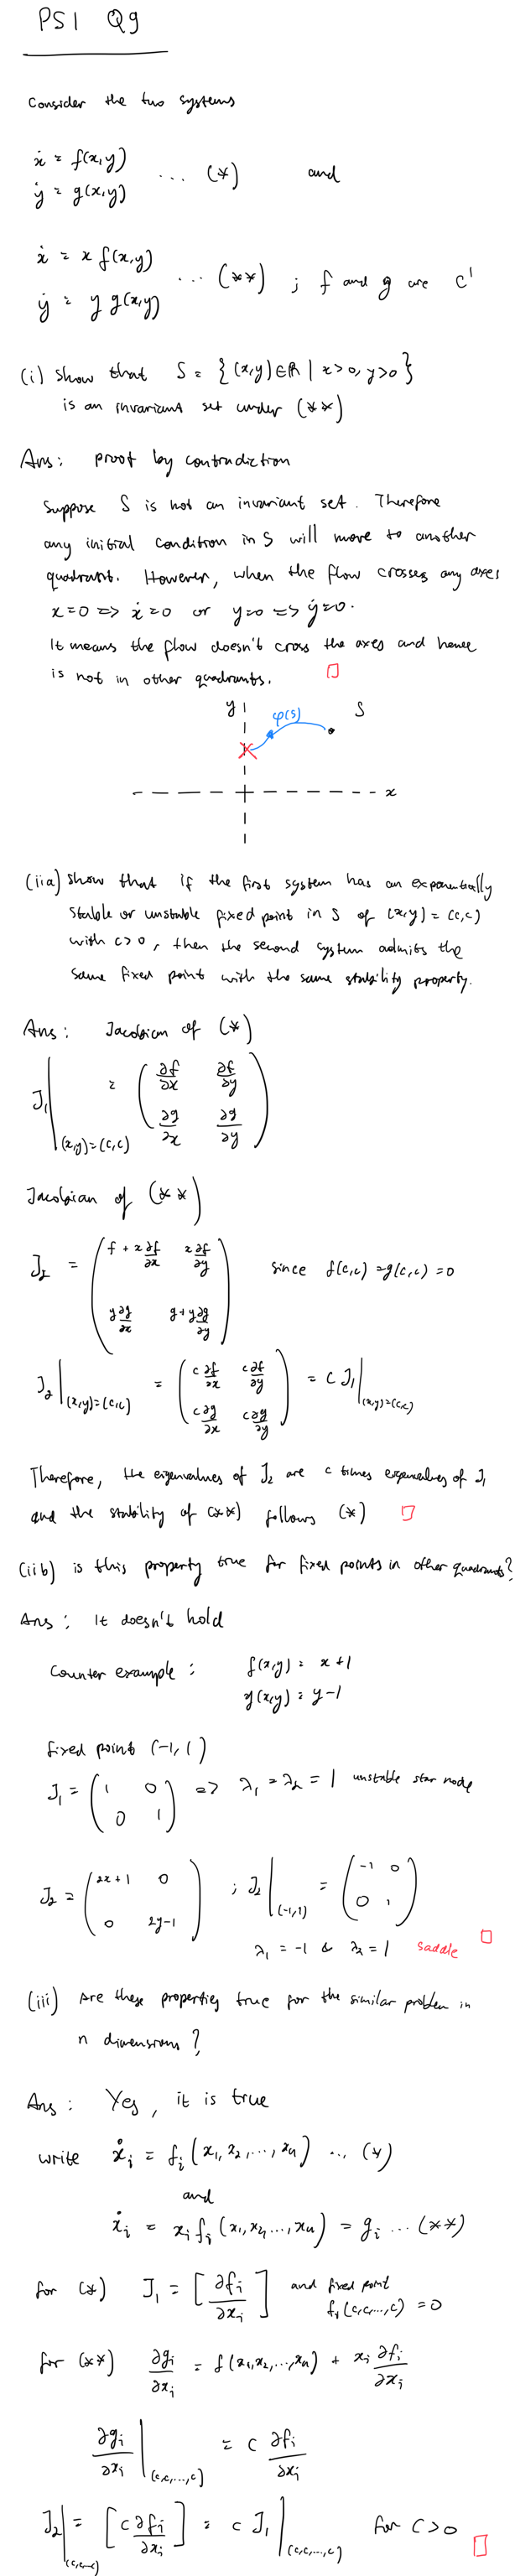 PS1 Q9
Consider the two systems
ẋ = f(x,y)
ẏ = g(x,y) ... (*) and
ẋ = x f(x,y)
ẏ = y g(x,y) ... (**) ; f and g are C¹
(i) Show that S = {(x,y)∈ℝ | x>0, y>0}
is an invariant set under (**)
Ans: proof by contradiction
Suppose S is not an invariant set. Therefore
any initial condition in S will move to another
quadrant. However, when the flow crosses any axes
x=0 => ẋ=0 or y=0 => ẏ=0.
It means the flow doesn't cross the axes and hence
is not in other quadrants. □
y φ(s) S
x
(iia) Show that if the first system has an exponentially
stable or unstable fixed point in S of (x,y) = (c,c)
with c>0, then the second system admits the
same fixed point with the same stability property.
Ans: Jacobian of (*)
J₁|(x,y)=(c,c) = (∂f/∂x ∂f/∂y
∂g/∂x ∂g/∂y)
Jacobian of (**)
J₂ = (f + x ∂f/∂x x ∂f/∂y
y ∂g/∂x g + y ∂g/∂y) since f(c,c) = g(c,c) = 0
J₂|(x,y)=(c,c) = (c ∂f/∂x c ∂f/∂y
c ∂g/∂x c ∂g/∂y) = c J₁|(x,y)=(c,c)
Therefore, the eigenvalues of J₂ are c times eigenvalues of J₁
and the stability of (**) follows (*) □
(iib) is this property true for fixed points in other quadrants?
Ans: It doesn't hold
Counter example: f(x,y) = x+1
g(x,y) = y-1
fixed point (-1,1)
J₁ = (1 0
0 1) => λ₁ = λ₂ = 1 unstable star node
J₂ = (2x+1 0
0 2y-1) ; J₂|(-1,1) = (-1 0
0 1)
λ₁ = -1 & λ₂ = 1 saddle □
(iii) Are these properties true for the similar problem in
n dimensions?
Ans: Yes, it is true
write ẋᵢ = fᵢ(x₁,x₂,...,xₙ) ... (*)
and
ẋᵢ = xᵢfᵢ(x₁,x₂,...,xₙ) = gᵢ ... (**)
for (*) J₁ = [∂fᵢ/∂xⱼ] and fixed point
fᵢ(c,c,...,c) = 0
for (**) ∂gᵢ/∂xⱼ = f(x₁,x₂,...,xₙ) + xᵢ ∂fᵢ/∂xⱼ
∂gᵢ/∂xⱼ|(c,c,...,c) = c ∂fᵢ/∂xⱼ
J₂|(c,c,...c) = [c ∂fᵢ/∂xⱼ] = c J₁|(c,c,...,c) for c>0 □